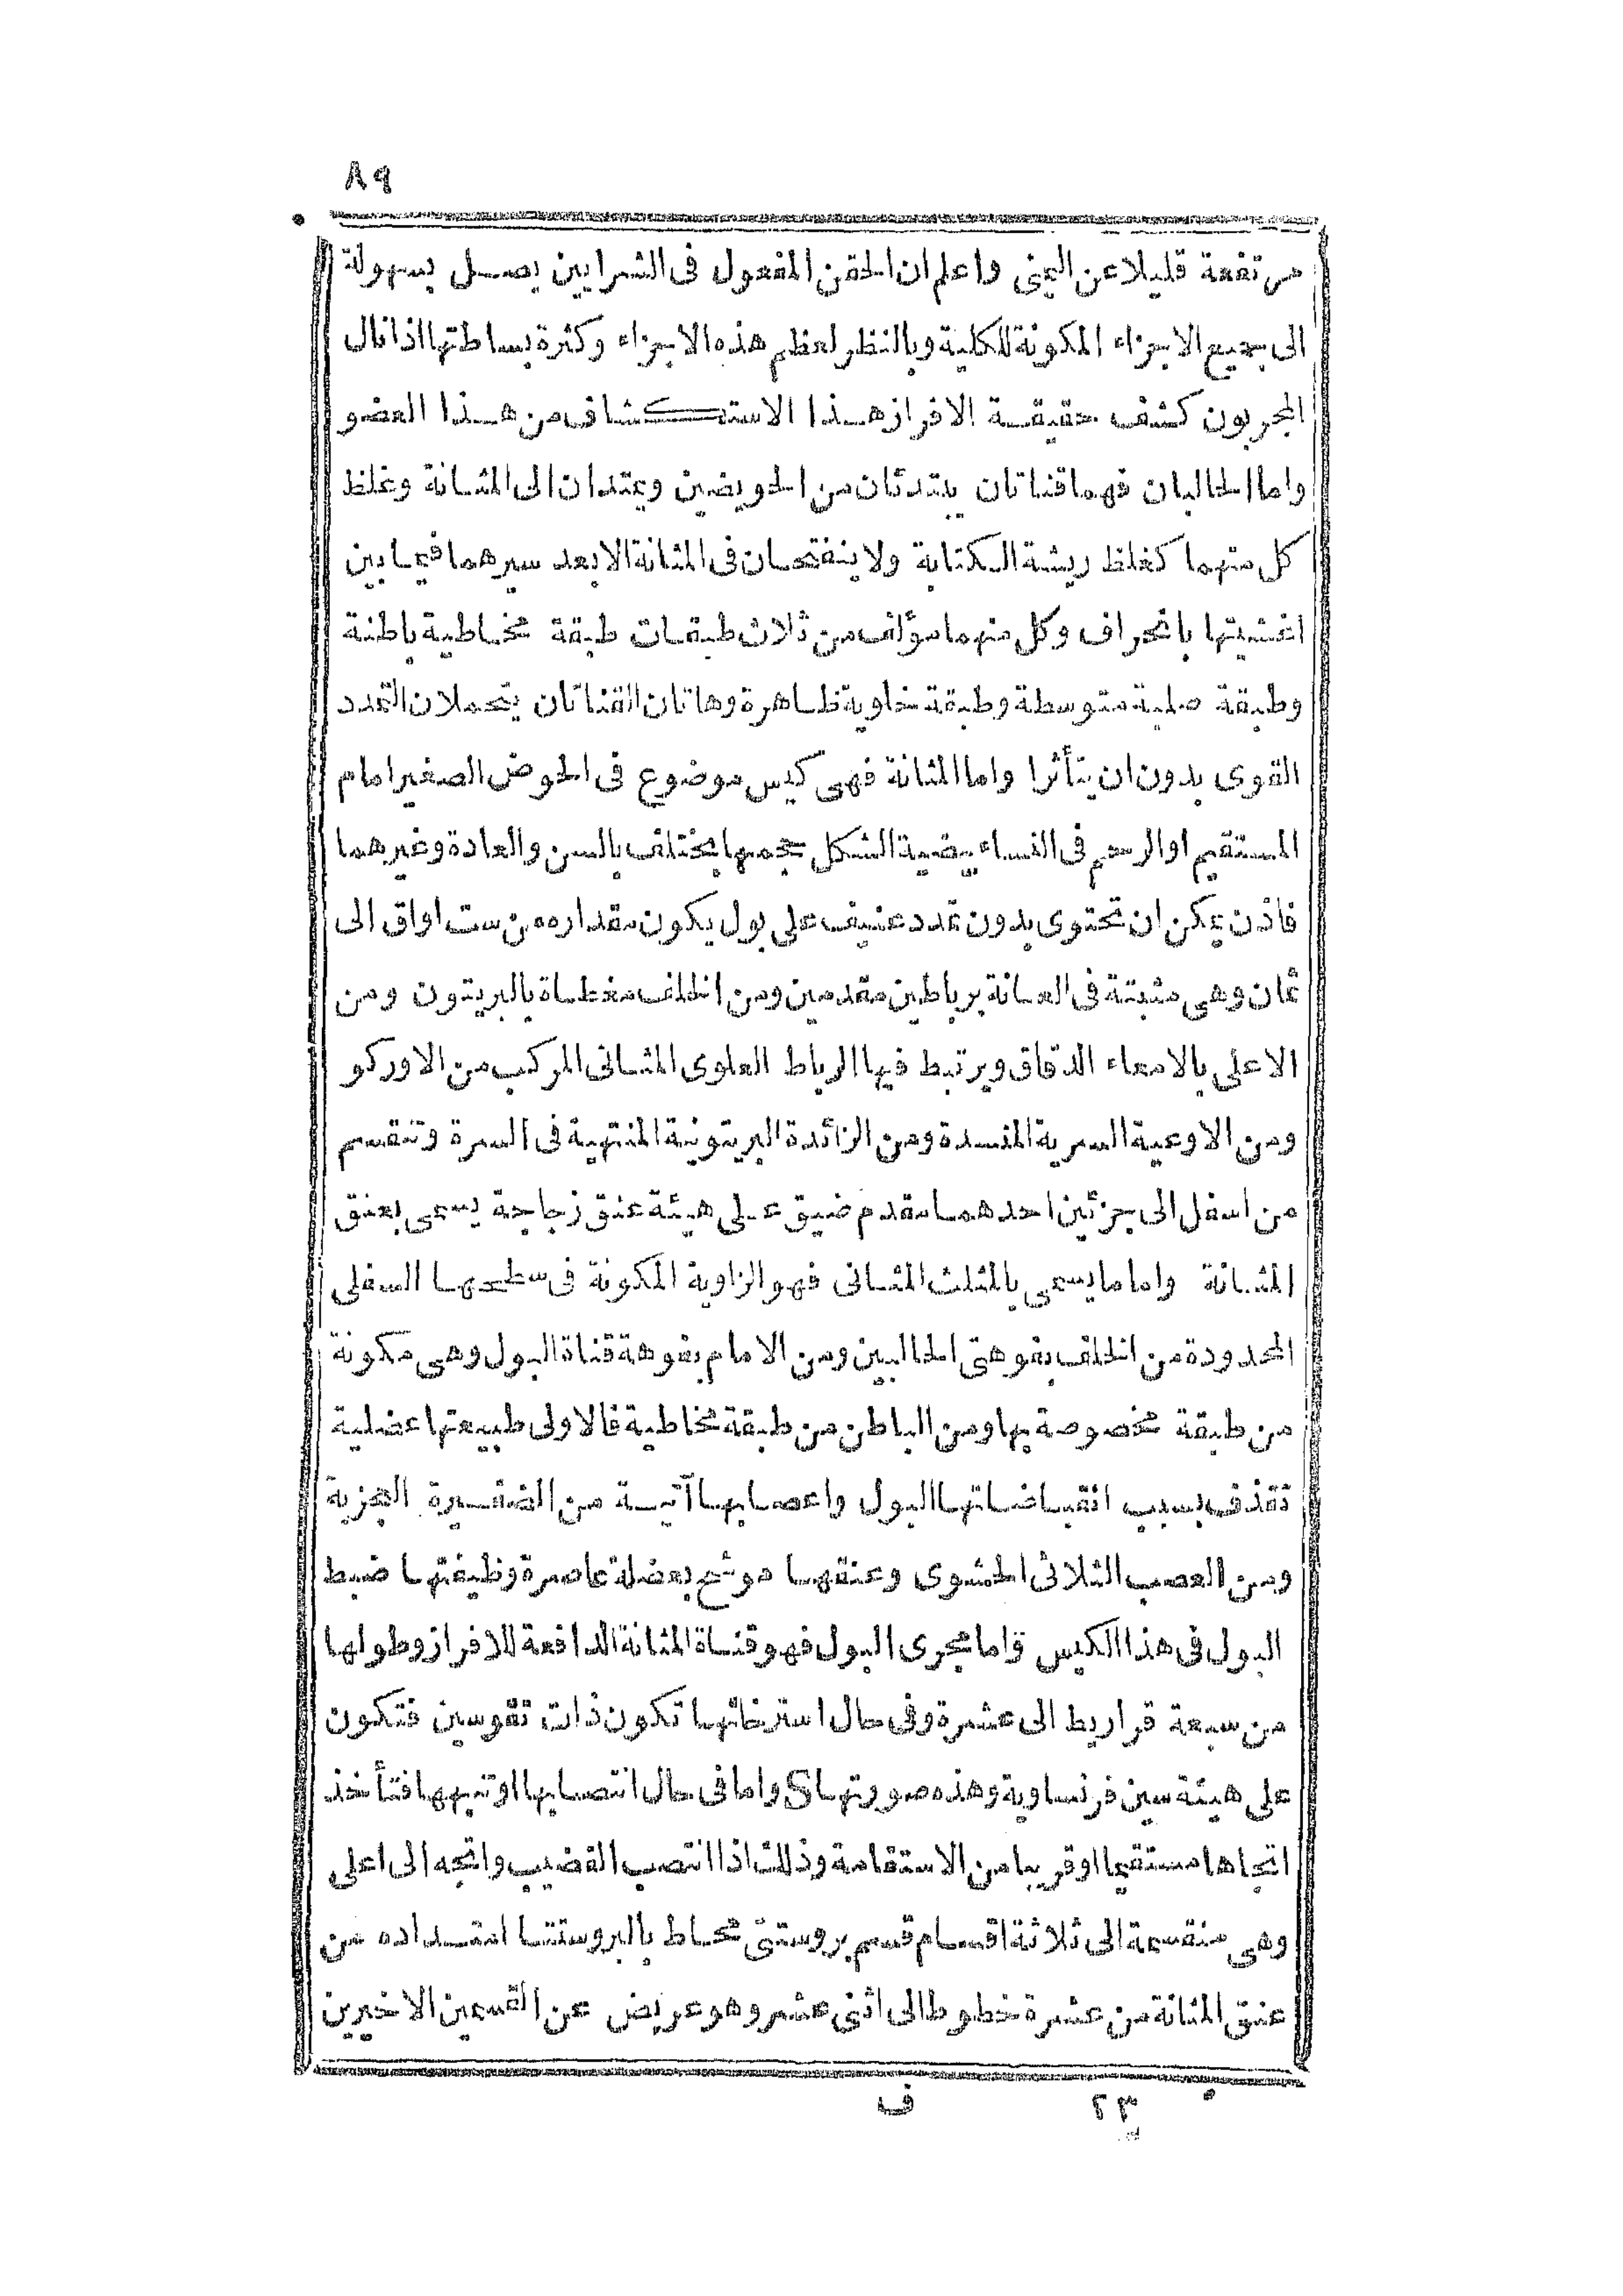 ٨٩
مرتفعة قليلا عن اليمنى واعلم ان الحقن المفعول فى الشرايين يصل بسهولة
الى جميع الاجزاء المكونة للكلية وبالنظر لعظم هذه الاجزاء وكثرة بساطتها اذا نال
المجربون كشف حقيقة الافراز هذا الاستكشاف من هذا العضو
واما الحالبان فهما قناتان يبتدئان من الحويضين ويمتدان الى المثانة وغلظ
كل منهما كغلظ ريشة الكتابة ولا ينفتحان فى المثانة الا بعد سيرهما فيما بين
اغشيتها بانحراف وكل منهما مؤلف من ثلاث طبقات طبقة مخاطية باطنة
وطبقة صلبة متوسطة وطبقة خلوية ظاهرة وهاتان القناتان يتحملان التمدد
القوى بدون ان يتأثرا واما المثانة فهى كيس موضوع فى الحوض الصغير امام
المستقيم او الرحم فى النساء بيضية الشكل حجمها يختلف بالسن والعادة وغيرهما
فاذن يمكن ان تحتوى بدون تمدد عنيف على بول يكون مقداره من ست اواق الى
ثمان وهى مثبتة فى العانة برباطين مقدمين ومن الخلف مغطاة بالبريتون ومن
الاعلى بالامعاء الدقاق ويرتبط فيها الرباط العلوى المثانى المركب من الاوركو
ومن الاوعية السرية المنسدة ومن الزائدة البريتونية المنتهية فى السرة وتنقسم
من اسفل الى جزئين احدهما مقدم ضيق على هيئة عنق زجاجة يسمى بعنق
المثانة واما ما يسمى بالمثلث المثانى فهو الزاوية المكونة فى سطحها السفلى
المحدودة من الخلف بفوهتى الحالبين ومن الامام بفوهة قناة البول وهى مكونة
من طبقة مخصوصة بها ومن الباطن من طبقة مخاطية فالاولى طبيعتها عضلية
تقذف بسبب انقباضاتها البول واعصابها آتية من الضفيرة العجزية
ومن العصب الثلاثى الحشوى وعنقها موشح بعضلة عاصرة وظيفتها ضبط
البول فى هذا الكيس واما مجرى البول فهو قناة المثانة الدافعة للافراز وطولها
من سبعة قراريط الى عشرة وفى حال استرخائها تكون ذات تقوسين فتكون
على هيئة سين فرنساوية وهذه صورتها S واما فى حال انتصابها او تنبهها فتأخذ
اتجاها مستقيما او قريبا من الاستقامة وذلك اذا انتصب القضيب واتجه الى اعلى
وهى منقسمة الى ثلاثة اقسام قسم بروستتى محاط بالبروستتا امتداده من
عنق المثانة من عشرة خطوط الى اثنى عشر وهو عريض عن القسمين الاخيرين
٢٣ ف